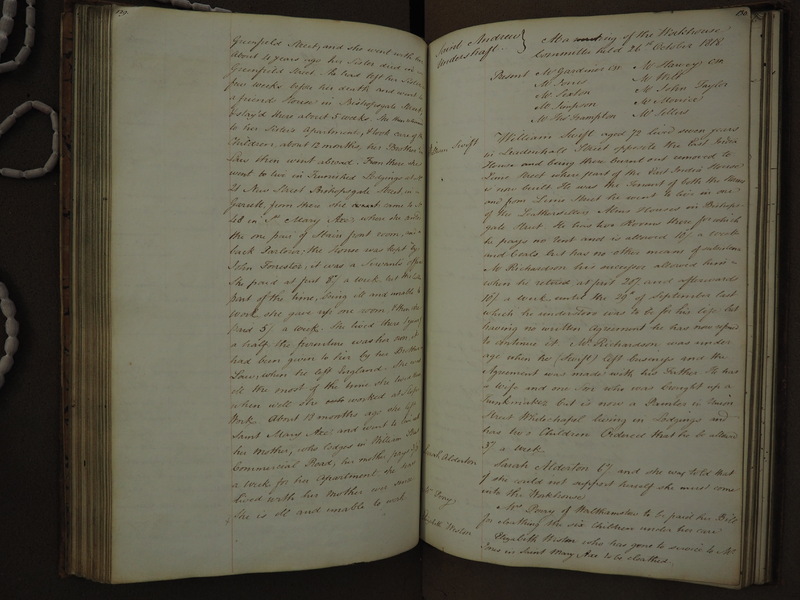 129
Greenfield Street, and she went with her
about 4 years ago her Sister died in
Greenfield Street. She had left her Sister
few weeks before her death and went
a friends House in Bishopsgate Street,
& stay'd there about 5 weeks. She then
to her Sisters Apartments, & took care of
Children, about 12 months, her Brother
Law then went abroad. From there she
went to live in Furnished Lodgings at
21 New Street Bishopsgate Street in a
Garrett, from there she came to
in St. Mary Axe where she
the one pair of Stairs front room, and
back Parlour; the House was kept by
John Forrester, it was a Servants office
She paid at first 8/ a week, but the latter
part of the time, being ill and unable to
work she gave up one room, & then she
paid 5/ a week. She lived there
a half, the furniture was her own, it
had been given to her by her Brother
Law, when he left England. She was
ill the most of the time she lived there
when well she worked at
Work. About 13 months ago she left
Saint Mary Axe and went to live with
her Mother, who lodges in William Street
Commercial Road, her mother pays
a week for her Apartment she has
lived with her Mother ever since
She is ill and unable to work
130
Saint Andrew
Undershaft
At a meeting of the Workhouse
Committee held 26th October 1818
Present Mr Gardiner Mr Stavey
Mr Jones Mr Wilt
Mr Sexton Mr John Taylor
Mr Simpson Mr Menier
Mr Jos. Frampton Mr Sellers
William Swift
William Swift aged 72 lived seven years
in Leadenhall Street opposite the East India
House and being there burnt out removed to
Lime Street where part of the East India House
is now built. He was the Tenant of both the Houses
and from Lime Street he went to live in one
of the Leathersellers Alms Houses in Bishops-
gate Street. He has two Rooms there for which
he pays no rent and is allowed 10/ a week
and Coals but has no other means of subsistence
Mr Richardson his successor allowed him
when he retired at first 20/ and afterwards
10/ a week until the 29th of September last
which he understood was to be for his life but
having no written Agreement he has now refused
to continue it. Mr Richardson was under
age when he (Swift) left business and the
Agreement was made with his Father. He has
a wife and one Son who was brought up a
Trunkmaker but is now a Painter in Union
Street Whitechapel living in Lodgings and
has two Children Ordered that he be allowed
3/ a week.
Sarah Alderton
Sarah Alderton 67. and she was told that
if she could not support herself she must come
into the Workhouse
Mr Perry
Mr Perry of Walthamstow to be paid his Bill
for cloathing the six Children under his care
Elizabeth Weston
Elizabeth Weston who has gone to service to Mr
in Saint Mary Axe to be cloathed.